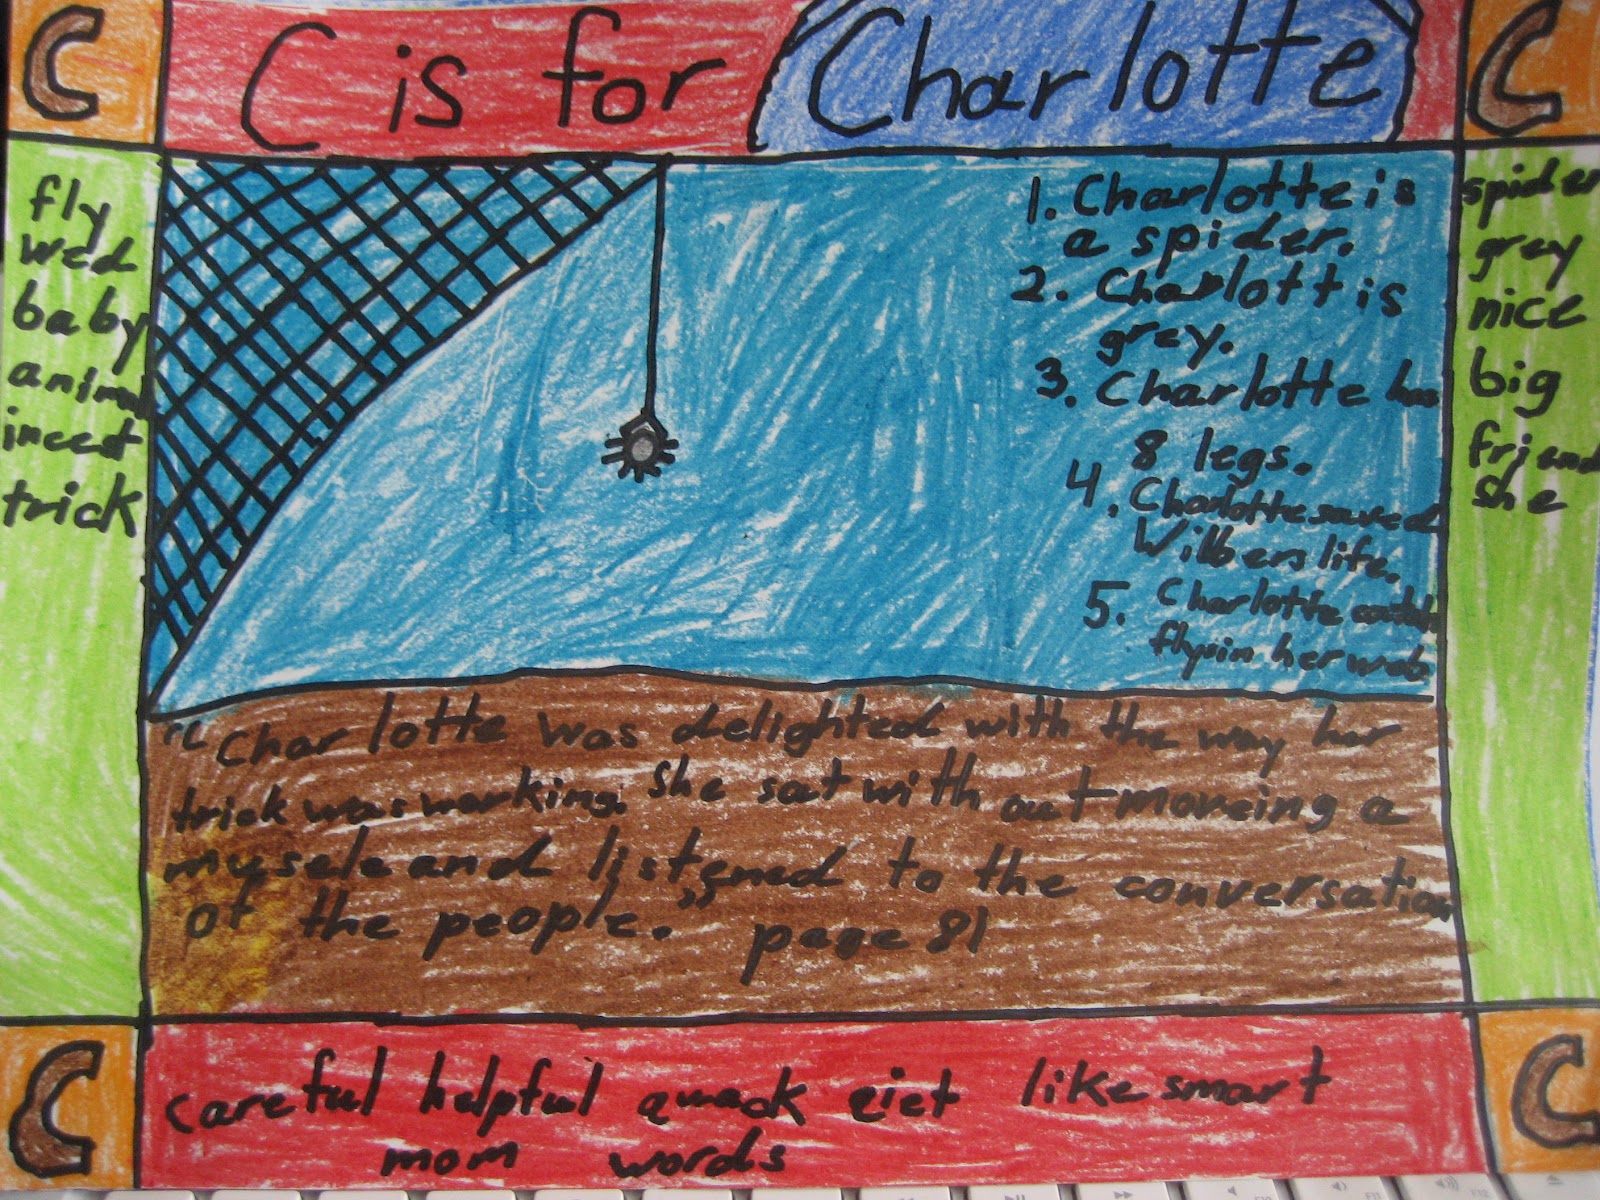 C
C is for Charlotte
C
fly
wed
baby
animal
incect
trick
1. Charlotte is
a spider.
2. Charlott is
grey.
3. Charlotte has
8 legs.
4. Charlotte saved
Wilbers life.
5. Charlotte
flys in her web.
spider
grey
nice
big
friend
she
"Charlotte was delighted with the way her
trick was working. She sat with out moveing a
musele and listened to the conversation
of the people." page 81
C
careful helpful quack eiet like smart
mom words
C